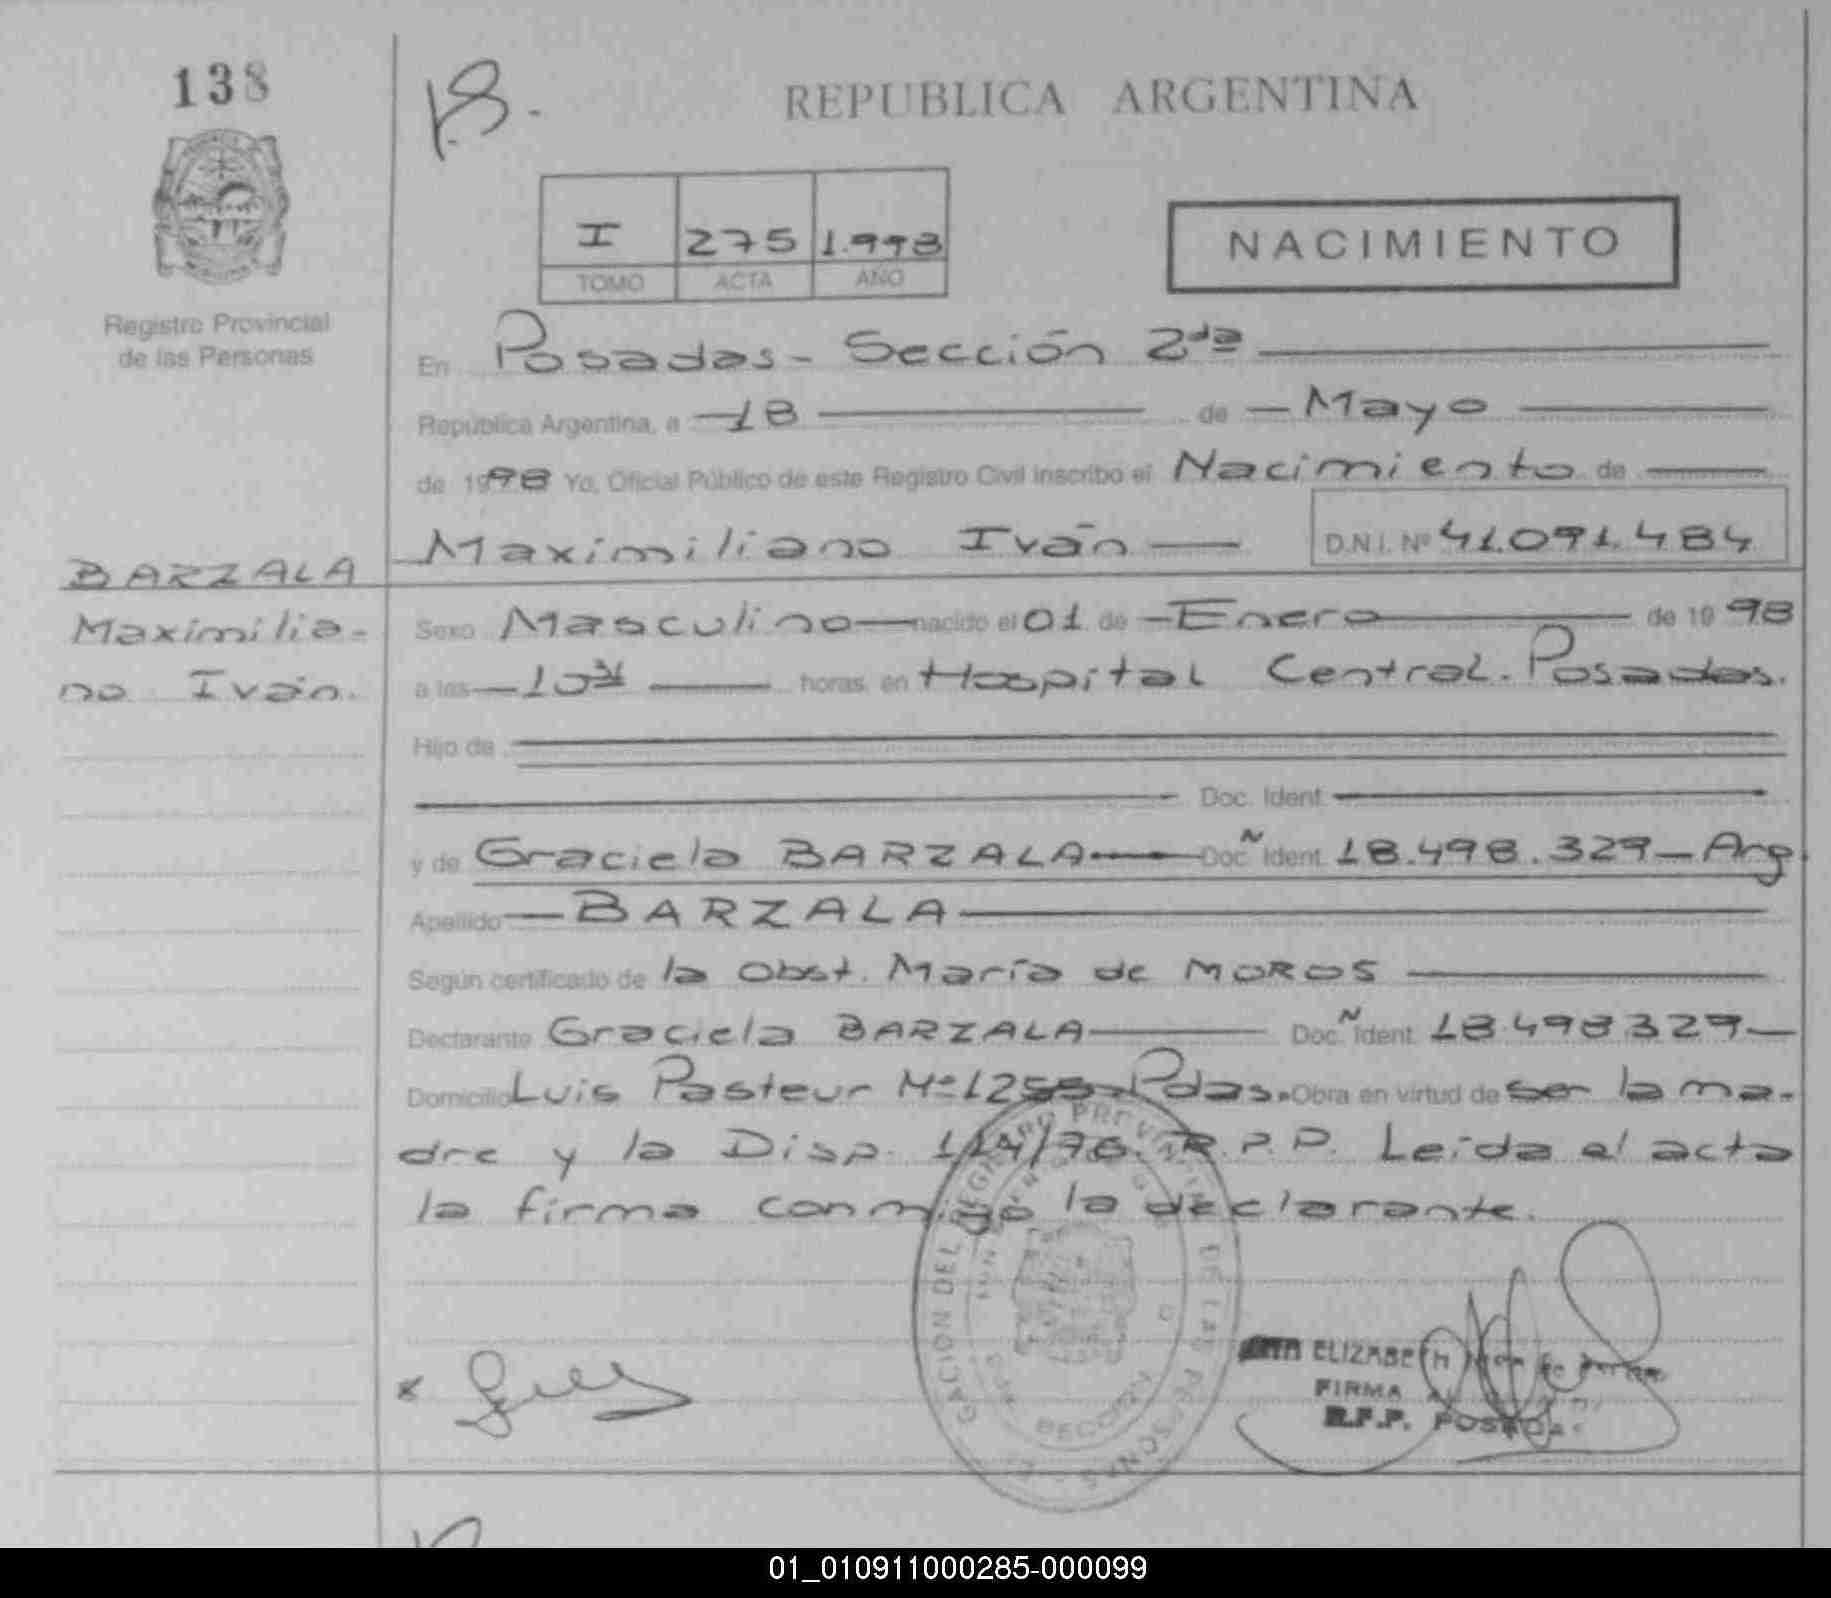 138
REPUBLICA ARGENTINA
I 275 1.998
TOMO ACTA AÑO
NACIMIENTO
Registro Provincial
de las Personas
En Posadas - Sección 2da
República Argentina, a 18 de Mayo
de 1998 Yo, Oficial Público de este Registro Civil inscribo el Nacimiento de
Maximiliano Iván D.N.I. Nº 41.091.484
BARZALA
Maximilia-
no Iván.
Sexo Masculino nacido el 01 de Enero de 1998
a las 10 horas en Hospital Central. Posadas.
Hijo de
Doc. Ident.
y de Graciela BARZALA Doc. Ident. 18.498.329 - Arg.
Apellido BARZALA
Según certificado de la Obst. María de MOROS
Declarante Graciela BARZALA Doc. Ident. 18.498.329
Domicilio Luis Pasteur Nº 1255 - Pdas. Obra en virtud de ser la ma-
dre y la Disp. 114/76. R.P.P. Leída el acta
la firma conmigo la declarante.
ELIZABETH
FIRMA
R.P.P. POSADAS
SECCION
01_010911000285-000099